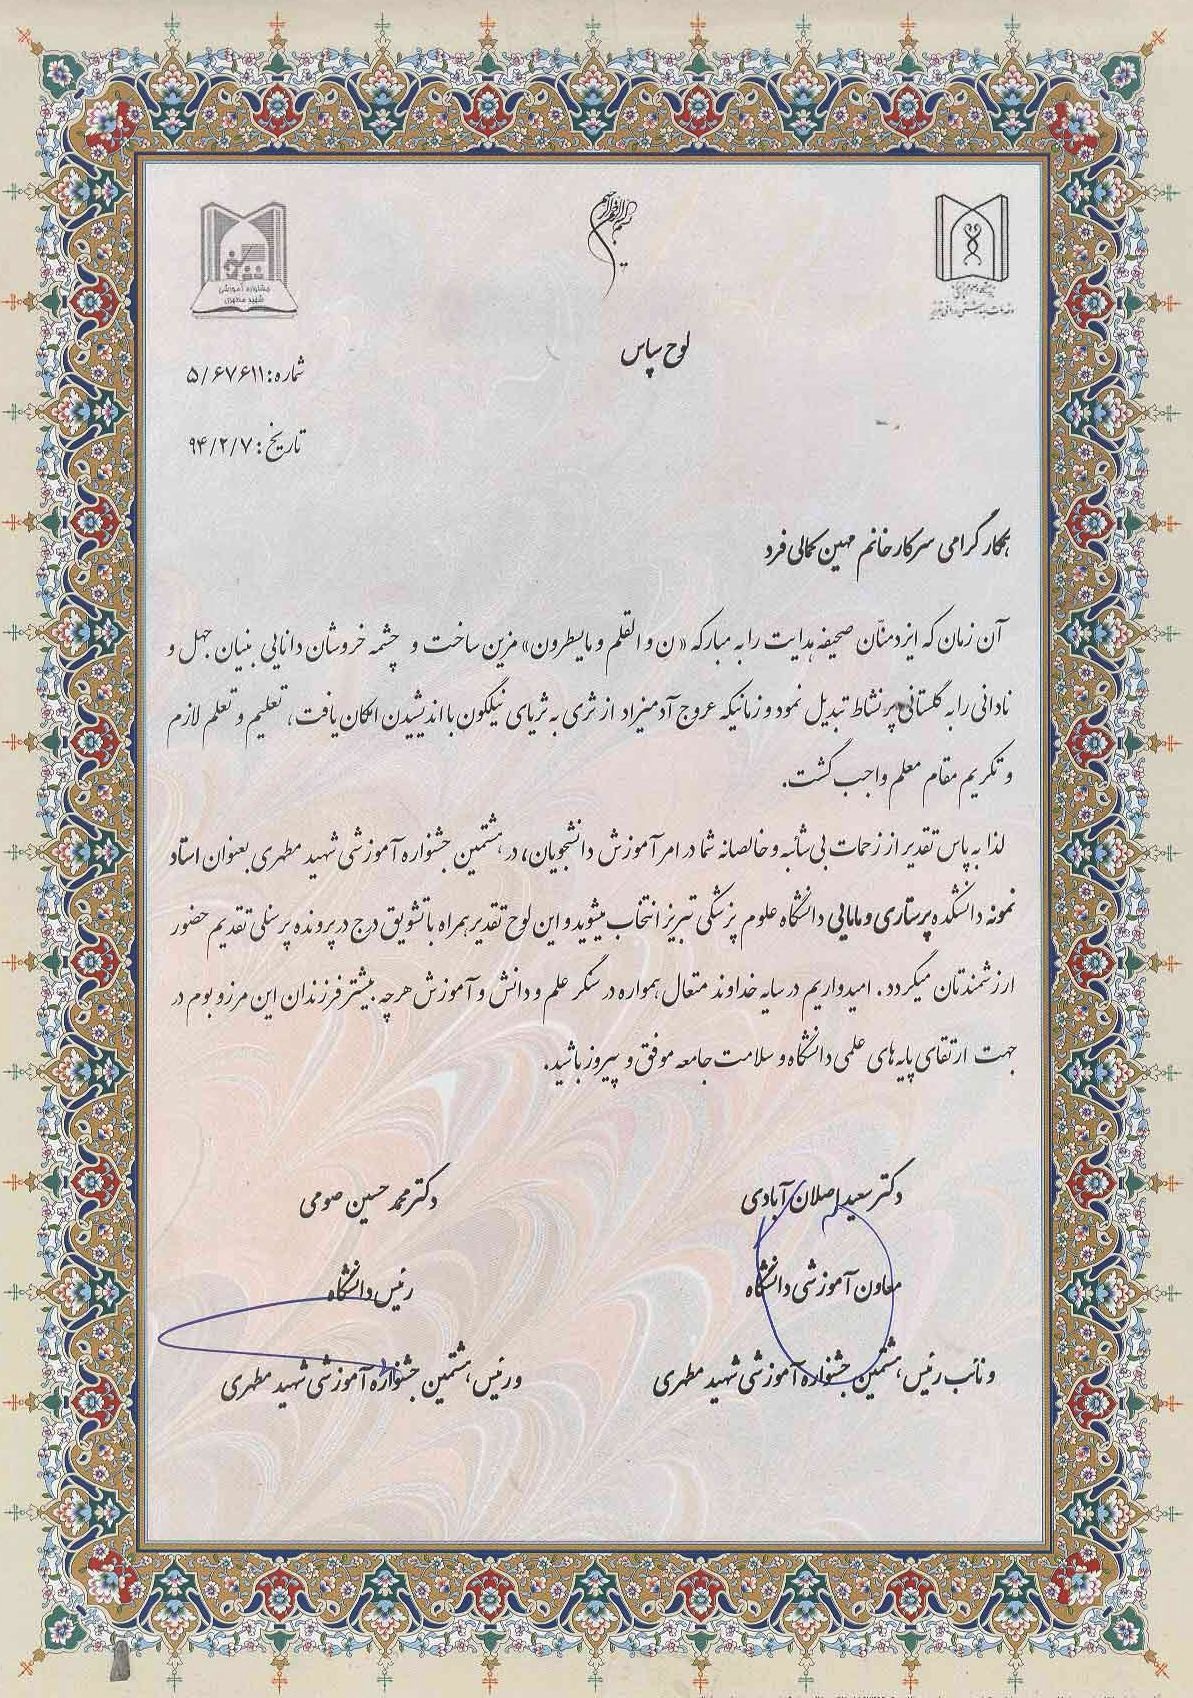 بسم الله الرحمن الرحیم
جشنواره آموزشی
شهید مطهری
لوح سپاس
شماره: ۵/۶۷۶۱۱
تاریخ: ۹۴/۲/۷
همکار گرامی سرکار خانم مهین کمالی فرد
آن زمان که ایزد منّان صحیفه هدایت را به مبارکه «ن و القلم و مایسطرون» مزین ساخت و چشمه خروشان دانایی بنیان جهل و
نادانی را به گلستانی پر نشاط تبدیل نمود و زمانیکه عروج آدمیزاد از ثری به ثریای نیلگون با اندیشیدن امکان یافت، تعلیم و تعلم لازم
و تکریم مقام معلم واجب گشت.
لذا به پاس تقدیر از زحمات بی شائبه و خالصانه شما در امر آموزش دانشجویان، در هشتمین جشنواره آموزشی شهید مطهری بعنوان استاد
نمونه دانشکده پرستاری و مامایی دانشگاه علوم پزشکی تبریز انتخاب میشوید و این لوح تقدیر همراه با تشویق درج در پرونده پرسنلی تقدیم حضور
ارزشمندتان میگردد. امیدواریم در سایه خداوند متعال همواره در سنگر علم و دانش و آموزش هرچه بیشتر فرزندان این مرز و بوم در
جهت ارتقای پایه های علمی دانشگاه و سلامت جامعه موفق و پیروز باشید.
دکتر سعید اصلان آبادی
معاون آموزشی دانشگاه
و نائب رئیس هشتمین جشنواره آموزشی شهید مطهری
دکتر محمد حسین صومی
رئیس دانشگاه
و رئیس هشتمین جشنواره آموزشی شهید مطهری